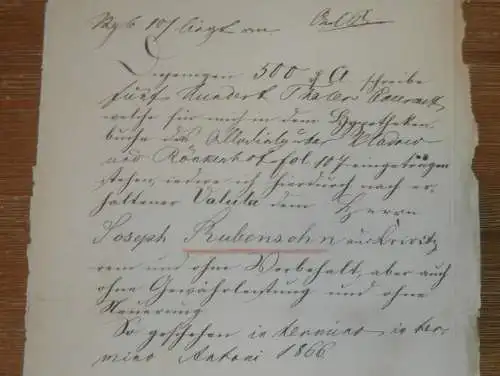 liegt an
Diejenigen 500 ₰ C schreibe
fünf Hundert Thaler Courant,
welche für mich in dem Hypotheken
buche des Allodialgutes Kladow
und Rönkenhof fol. 107 eingetragen
stehen, cedire ich hierdurch nach er-
haltener Valuta dem Herrn
Joseph Rubensohn aus Crivitz
rem und ohne Vorbehalt, aber auch
ohne Gewährleistung und ohne
Neuerung
So geschehen in termino in ter-
mino Antoni 1866